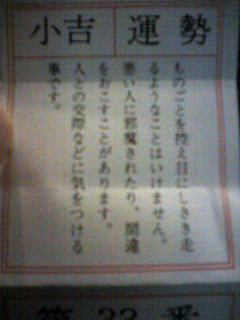 運勢
小吉
ものごとを控え目にしさき走
るようなことはいけません。
悪い人に邪魔されたり、間違
をおこすことがあります。
人との交際などに気をつける
事です。
第 33 番